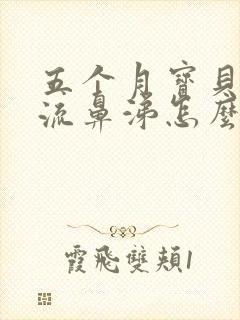 五个月寶貝
流鼻涕怎麽
霞飛雙頰1